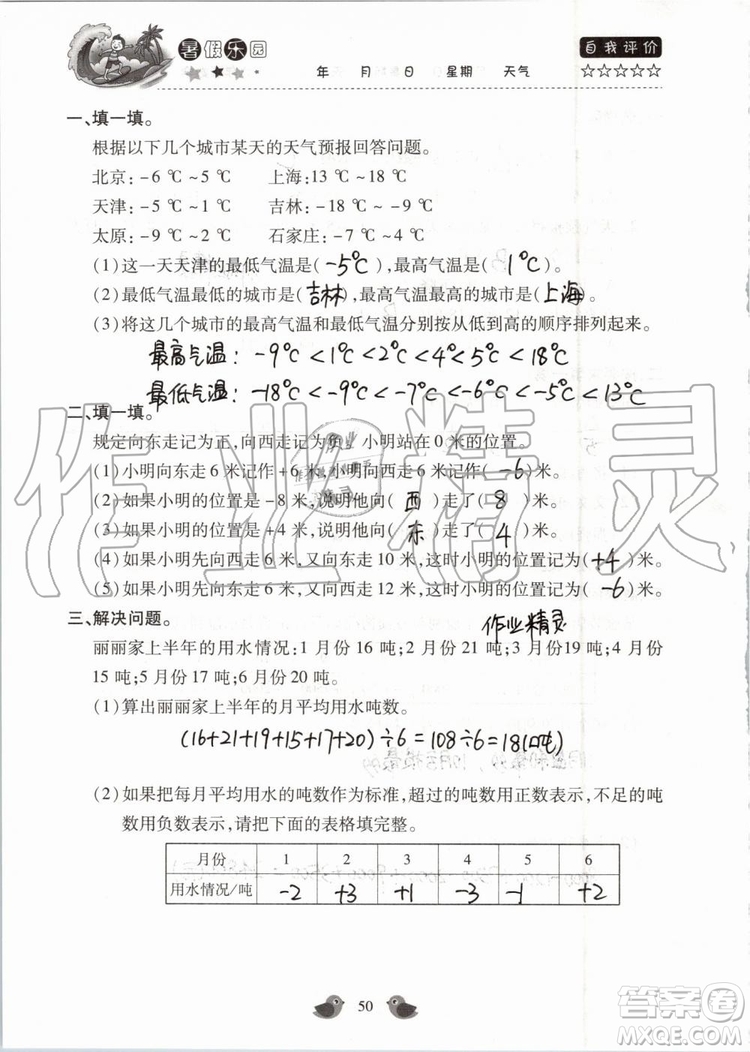 暑假乐园
自我评价
年 月 日 星期 天气 ☆☆☆☆☆
一、填一填。
根据以下几个城市某天的天气预报回答问题。
北京:-6 ℃~5 ℃ 上海:13 ℃~18 ℃
天津:-5 ℃~1 ℃ 吉林:-18 ℃~-9 ℃
太原:-9 ℃~2 ℃ 石家庄:-7 ℃~4 ℃
(1)这一天天津的最低气温是( -5℃ ),最高气温是( 1℃ )。
(2)最低气温最低的城市是( 吉林 ),最高气温最高的城市是( 上海 )。
(3)将这几个城市的最高气温和最低气温分别按从低到高的顺序排列起来。
最高气温: -9℃<1℃<2℃<4℃<5℃<18℃
最低气温: -18℃<-9℃<-7℃<-6℃<-5℃<13℃
二、填一填。
规定向东走记为正,向西走记为负,小明站在 0 米的位置。
(1)小明向东走 6 米记作+6 米,小明向西走 6 米记作( -6 )米。
(2)如果小明的位置是-8 米,说明他向( 西 )走了( 8 )米。
(3)如果小明的位置是+4 米,说明他向( 东 )走了( 4 )米。
(4)如果小明先向西走 6 米,又向东走 10 米,这时小明的位置记为( +4 )米。
(5)如果小明先向东走 6 米,又向西走 12 米,这时小明的位置记为( -6 )米。
三、解决问题。
作业精灵
丽丽家上半年的用水情况:1 月份 16 吨;2 月份 21 吨;3 月份19吨;4 月份
15 吨;5 月份 17 吨;6 月份 20 吨。
(1)算出丽丽家上半年的月平均用水吨数。
(16+21+19+15+17+20)÷6=108÷6=18(吨)
(2)如果把每月平均用水的吨数作为标准,超过的吨数用正数表示,不足的吨
数用负数表示,请把下面的表格填完整。
月份 1 2 3 4 5 6
用水情况/吨 -2 +3 +1 -3 -1 +2
50
作业精灵
答案圈
MXQE.COM